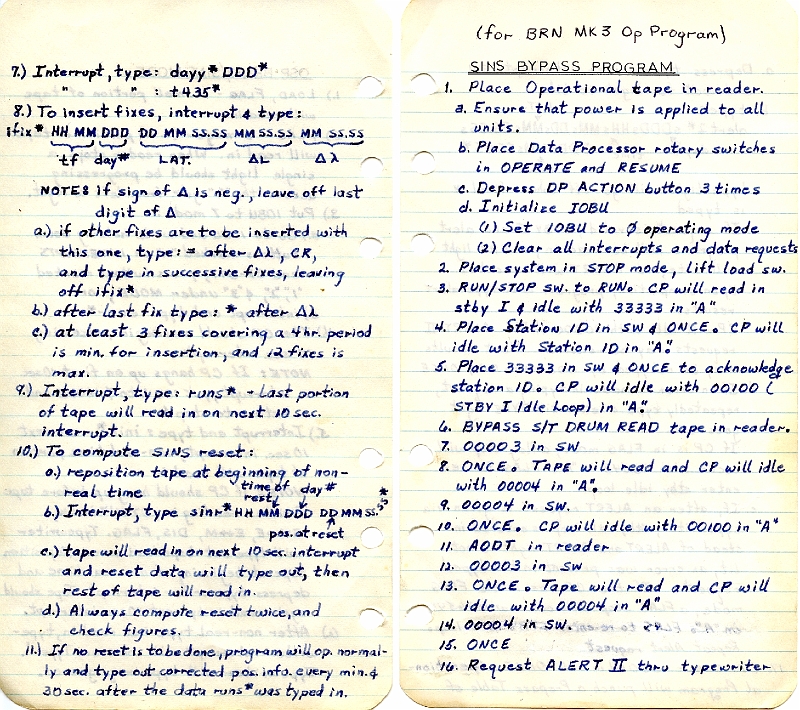 7.) Interrupt, type: dayy* DDD*
" " : t435*
8.) To insert fixes, interrupt & type:
ifix* HH MM DDD DD MM SS.SS MM SS.SS MM SS.SS
tf day# LAT. ΔL Δλ
NOTE: if sign of Δ is neg., leave off last
digit of Δ
a.) if other fixes are to be inserted with
this one, type: = after Δλ, CR,
and type in successive fixes, leaving
off ifix*
b.) after last fix type: * after Δλ
c.) at least 3 fixes covering a 4 hr. period
is min. for insertion, and 12 fixes is
max.
9.) Interrupt, type: runs* - Last portion
of tape will read in on next 10 sec.
interrupt.
10.) To compute SINS reset:
a.) reposition tape at beginning of non-
real time
time of day#
reset
b.) Interrupt, type sinr* HH MM DDD DD MM SS.S*
pos. at reset
c.) tape will read in on next 10 sec. interrupt
and reset data will type out, then
rest of tape will read in.
d.) Always compute reset twice, and
check figures.
11.) If no reset is to be done, program will op. normal-
ly and type out corrected pos. info. every min. &
30 sec. after the data runs* was typed in.
(for BRN MK3 Op Program)
SINS BYPASS PROGRAM
1. Place Operational tape in reader.
a. Ensure that power is applied to all
units.
b. Place Data Processor rotary switches
in OPERATE and RESUME
c. Depress DP ACTION button 3 times
d. Initialize IOBU
(1) Set IOBU to 0 operating mode
(2) Clear all interrupts and data requests
2. Place system in STOP mode, lift load sw.
3. RUN/STOP SW. to RUN. CP will read in
stby I & idle with 33333 in "A"
4. Place Station ID in SW & ONCE. CP will
idle with Station ID in "A".
5. Place 33333 in SW & ONCE to acknowledge
station ID. CP will idle with 00100 (
STBY I Idle Loop) in "A".
6. BYPASS S/T DRUM READ tape in reader.
7. 00003 in SW
8. ONCE. TAPE will read and CP will idle
with 00004 in "A".
9. 00004 in SW.
10. ONCE. CP will idle with 00100 in "A"
11. AODT in reader
12. 00003 in SW
13. ONCE. Tape will read and CP will
idle with 00004 in "A".
14. 00004 in SW.
15. ONCE
16. Request ALERT II thru typewriter